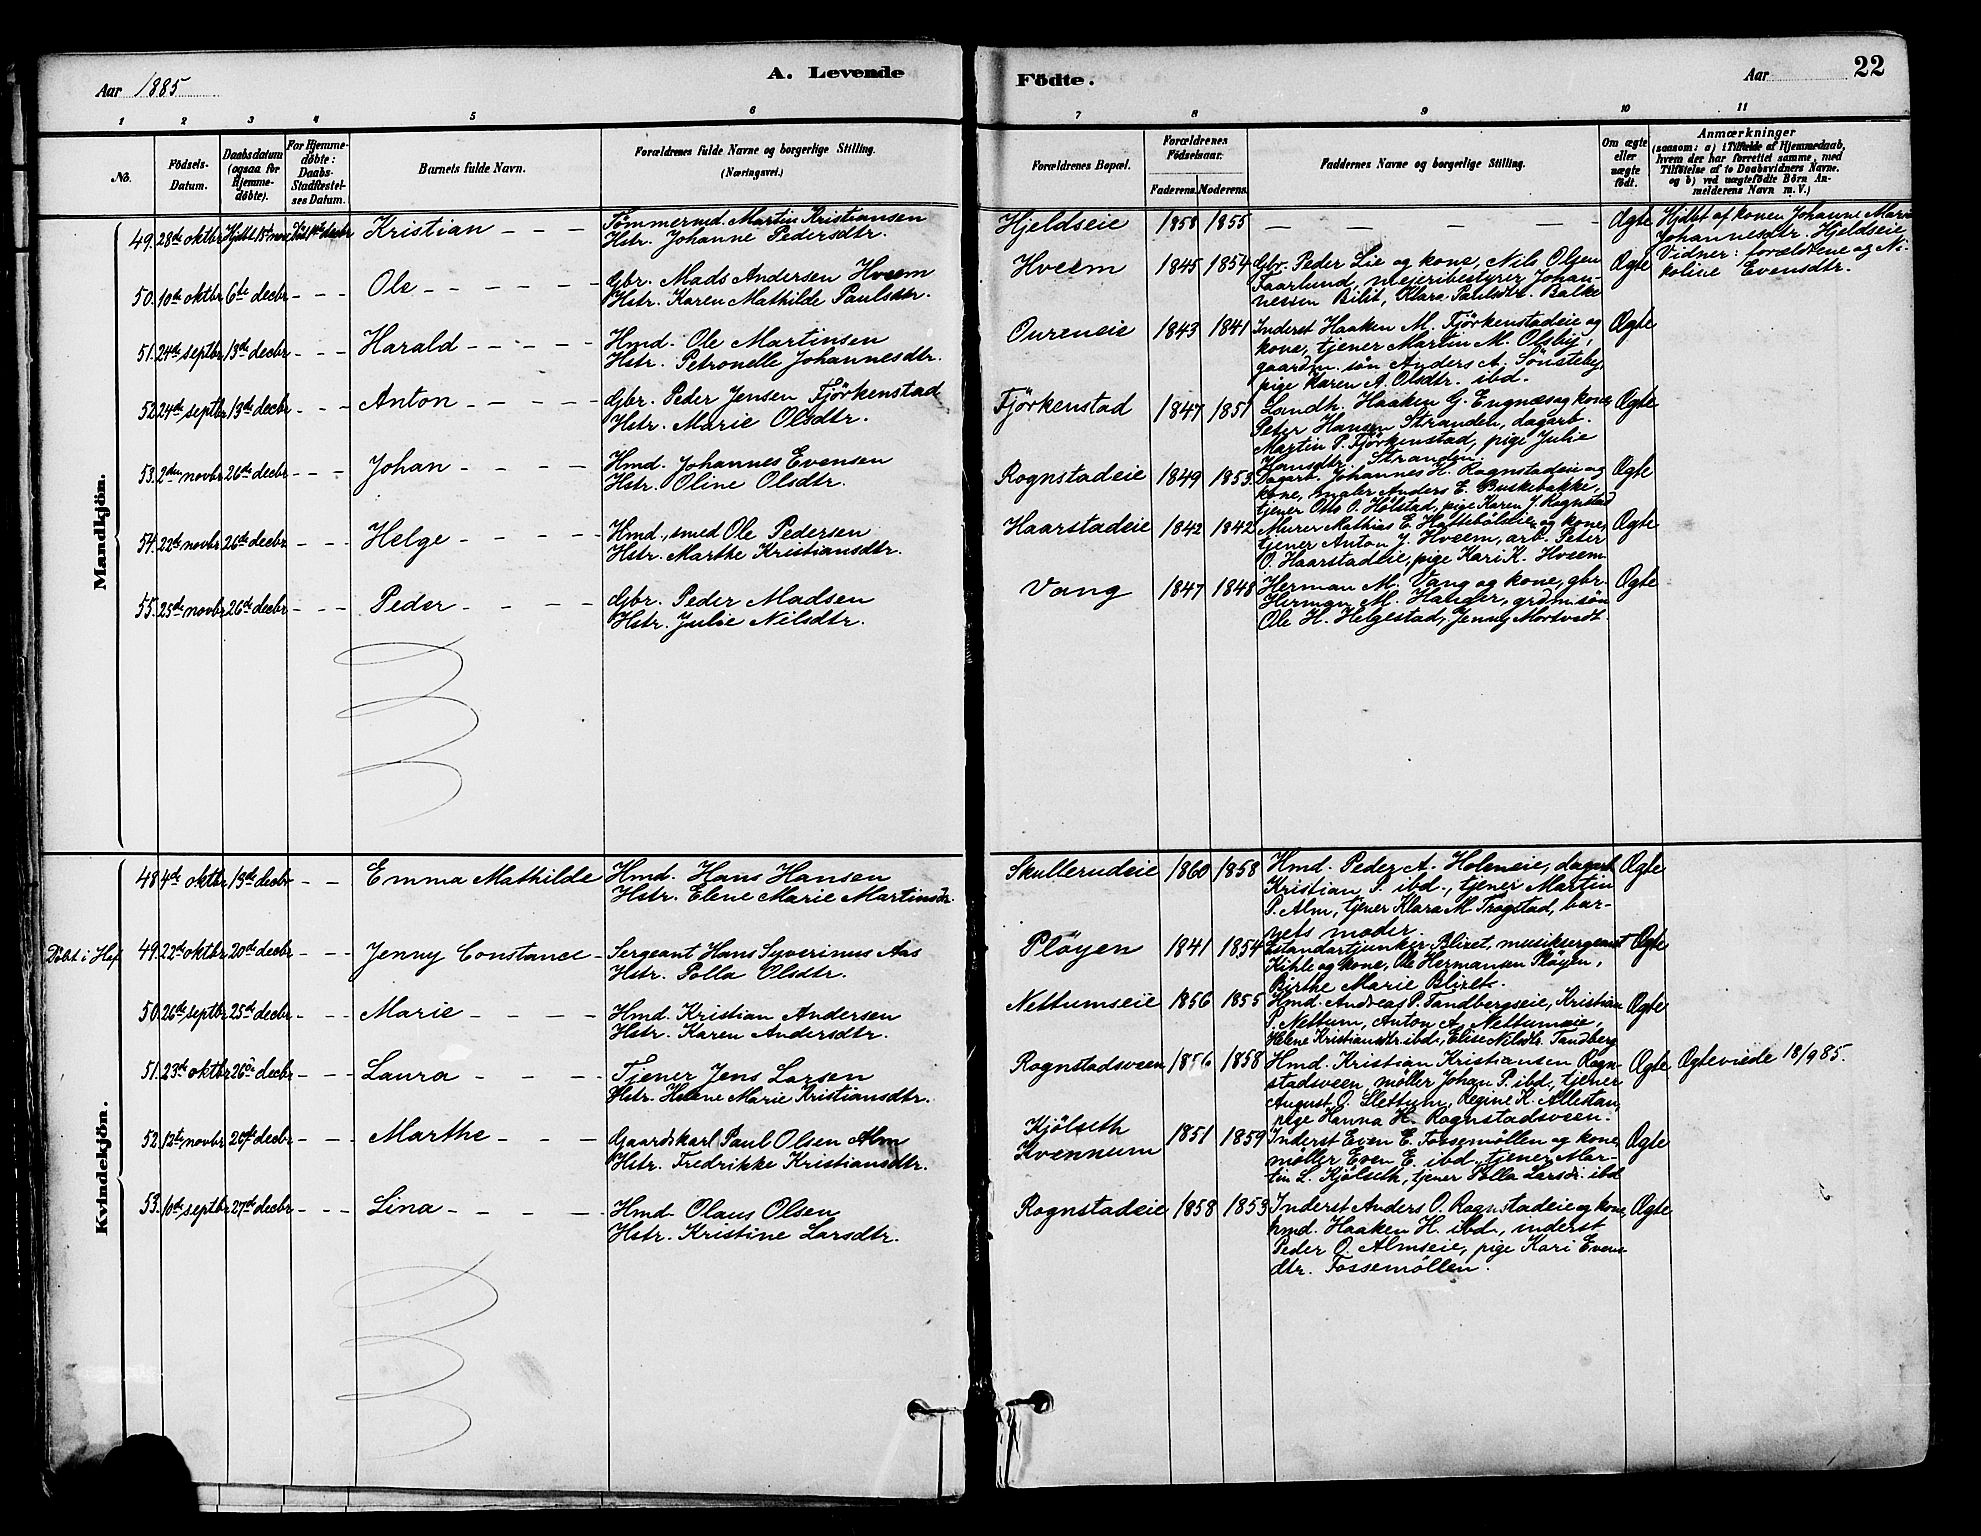 Aar 1885
A. Levende
Födte.
Aar
22
1 2 3 4 5 6 7 8 9 10 11
No.
Födsels-Datum.
Daabsdatum (ogsaa for Hjemme-døbte).
For Hjemme-døbte: Daabs-Stadfæstel-ses Datum.
Barnets fulde Navn.
Forældrenes fulde Navne og borgerlige Stilling.
(Næringsvei.)
Forældrenes Bopæl.
Forældrenes Födselsaar.
Faderens. Moderens.
Faddernes Navne og borgerlige Stilling.
Om ægte eller uægte født.
Anmærkninger
(saasom: a) i Tilfælde af Hjemmedaab,
hvem der har forrettet samme, med
Tilföielse af to Daabsvidners Navne.
og b) ved uægtefödte Börn An-
melderens Navn m. V.)
Mandkjön.
49. 28de oktbr Hjdbt 15de novbr decbr Kristian
Tömmermd. Martin Kristiansen
Hstr. Johanne Pedersdtr.
Hjeldseie 1858 1855 Ægte
Hjdbt af konen Johanne Marie
Johannesdtr. Hjeldseie
Vidner: forældrene og Ni-
koline Evensdtr.
50. 10de oktbr 6te decbr Ole
Gbr. Mads Andersen Hveem
Hstr. Karen Mathilde Paulsdtr.
Hveem 1845 1854 Gbr. Peder Lie og kone, Nils Olsen
Faarlund, mejeribestyrer Johan-
nessen Bilit, Klara Paulsdtr. Balke
Ægte
51. 24de septbr 13de decbr Harald
Hmd. Ole Martinsen
Hstr. Petronelle Johannesdtr.
Oureneie 1843 1841 Inderst Haaken M. Fjörkenstadeie og
kone, tjener Martin M. Olsby,
gaardm. søn Anders A. Sönsteby,
pige Karen A. Olsdtr. ibd.
Ægte
52. 24de septbr 13de decbr Anton
Gbr. Peder Jensen Fjörkenstad
Hstr. Marie Olsdtr.
Fjörkenstad 1847 1851 Landh. Haaken G. Engnæs og kone,
Peter Hansen Stranden, dagarb.
Martin P. Fjörkenstad, pige Julie
Hansdtr. Stranden.
Ægte
53. 2den novbr 26de decbr Johan
Hmd. Johannes Evensen
Hstr. Oline Olsdtr.
Rognstadeie 1849 1853 Dagarb. Johannes H. Rognstadeie og
kone, maler Anders E. Buskebakke,
tjener Otto O. Hölstad, pige Karen J. Rognstad
Ægte
54. 22de novbr 26de decbr Helge
Hmd., smed Ole Pedersen
Hstr. Marthe Kristiansdtr.
Haarstadeie 1842 1842 Murer Mathias E. Hatteböleie og kone,
tjener Anton J. Hveem, arb. Peter
O. Haarstadeie, pige Kari K. Hveem
Ægte
55. 25de novbr 26de decbr Peder
Gbr. Peder Madsen
Hstr. Julie Nilsdtr.
Vang 1847 1848 Herman M. Vang og kone, gbr.
M. Hanger, grdm. søn
Ole H. Helgestad, Jenny Mortvedt
Ægte
Kvindekjön.
48 4de oktbr 13de decbr Emma Mathilde
Hmd. Hans Hansen
Hstr. Elene Marie Martinsdtr.
Skullerudeie 1860 1858 Hmd. Peder A. Holeneie, dagarb.
Kristian P. ibd., tjener Martin
P. Alm, tjener Klara M. Trogstad, bar-
nets moder.
Ægte
Döbt i Hof
49. 22de oktbr 20de decbr Jenny Constance
Sergeant Hans Syverinus Aas
Hstr. Polla Olsdtr.
Pløyen 1841 1854 Estandartjunker Blixet, musiksergeant
Kihle og kone, Ole Hermansen Pløyen,
Birthe Marie Blixet.
Ægte
50. 26de septbr 25de decbr Marie
Hmd. Kristian Andersen
Hstr. Karen Andersdtr.
Nettumseie 1856 1855 Hmd. Andreas P. Tandbergseie, Kristian
P. Nettum, Anton A. Nettumseie,
Helene Kristiansdtr ibd., Elise Nilsdtr. Tandberg
Ægte
51. 23de oktbr 26de decbr Laura
Tjener Jens Larsen
Hstr. Helene Marie Kristiansdtr.
Rognstadsveen 1856 1858 Hmd. Kristian Kristiansen Rogn-
stadsveen, møller Johan P. ibd., tjener
August O. Slettum, Regine K. Allestau,
pige Hanna H. Rognstadsveen.
Ægte Ægteviede 18/9 85.
52. 12te novbr 26de decbr Marthe
Gaardskarl Paul Olsen Alm
Hstr. Fredrikke Kristiansdtr.
Kjölseth
Kvennum
1851 1859 Inderst Even E. Fossemöllen og kone,
møller Even E. ibd., tjener Mar-
tin L. Kjölseth, tjener Polla Larsdr. ibd
Ægte
53. 10de septbr 27de decbr Lina
Hmd. Olaus Olsen
Hstr. Kristine Larsdtr.
Rognstadeie 1858 1853 Inderst Anders O. Rognstadeie og kone,
hmd. Haaken H. ibd., inderst
Peder O. Almseie, pige Kari Evens-
dtr. Fossemöllen.
Ægte